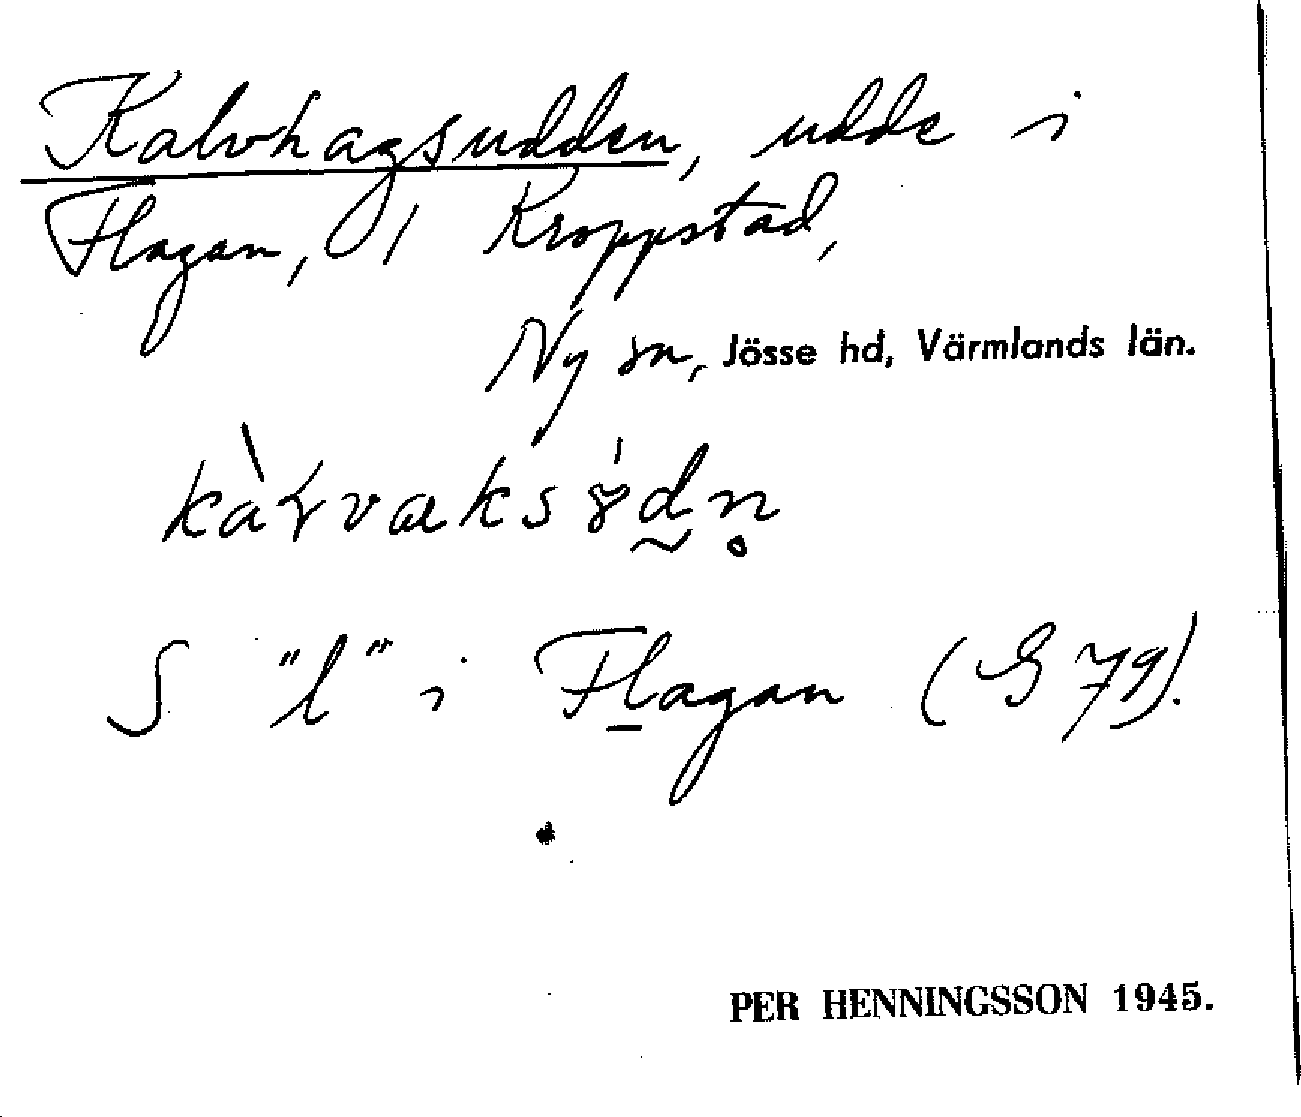 Kalvhagsudden, udde i
Flagan, i Kroppstad,
Ny sn, Jösse hd, Värmlands län.
S "l" i Flagan (G 79).
PER HENNINGSSON 1945.